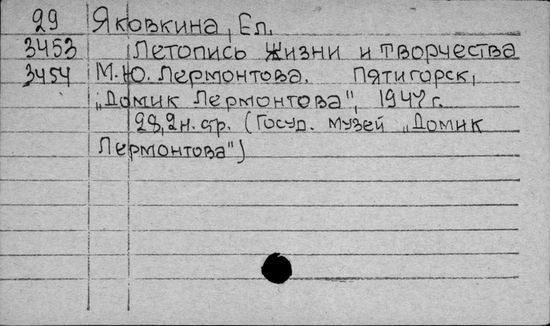 29 Яковкина, Ел.
3453 Летопись жизни и творчества
3454 М.Ю. Лермонтова. Пятигорск,
„Домик Лермонтова", 1947 г.
28,2н.стр. (Госуд. музей „Домик
Лермонтова")